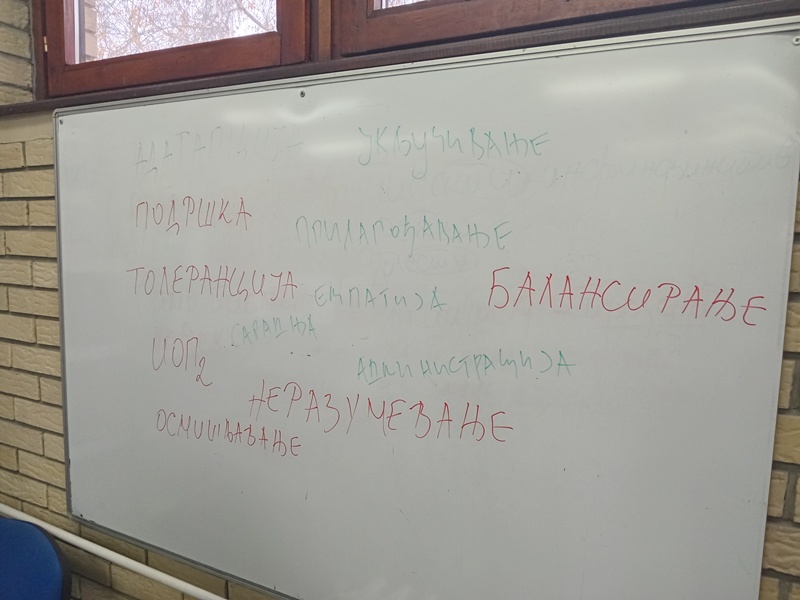 АДАПТАЦИЈА
УКЉУЧИВАЊЕ
ПОДРШКА
ПРИЛАГОЂАВАЊЕ
ТОЛЕРАНЦИЈА
ЕМПАТИЈА
БАЛАНСИРАЊЕ
САРАДЊА
ИОП2
АДМИНИСТРАЦИЈА
НЕРАЗУМЕВАЊЕ
ОСМИШЉАВАЊЕ